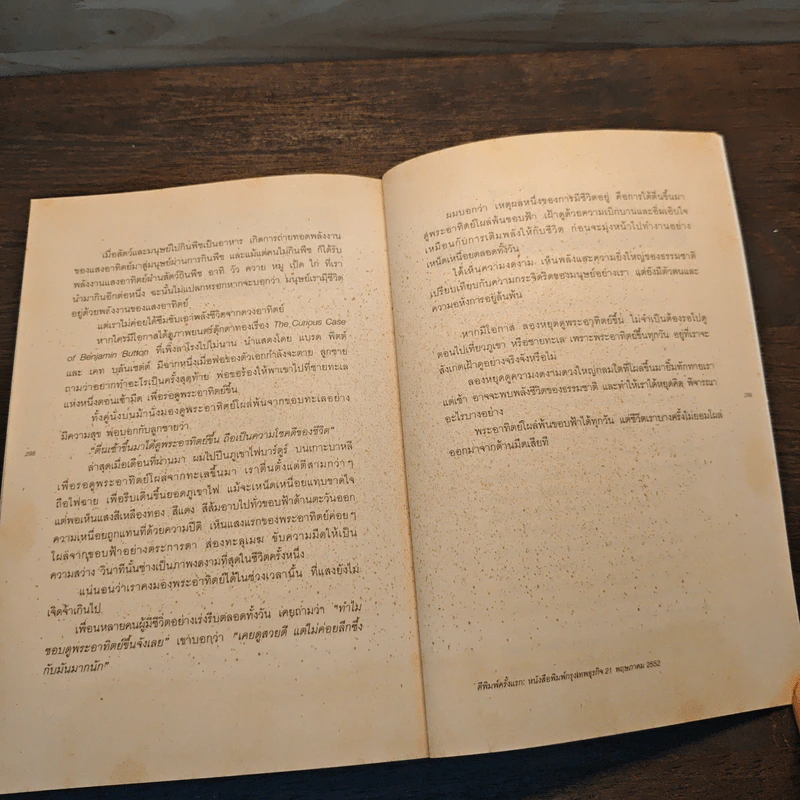 เมื่อสัตว์และมนุษย์ไปกินพืชเป็นอาหาร เกิดการถ่ายทอดพลังงาน
ของแสงอาทิตย์มาสู่มนุษย์ผ่านการกินพืช และแม้แต่คนไม่กินพืช ก็ได้รับ
พลังงานแสงอาทิตย์ผ่านสัตว์อื่นที่กินพืช อาทิ วัว ควาย หมู เป็ด ไก่ ที่เรา
นำมากินอีกต่อหนึ่ง ฉะนั้นไม่แปลกหรอกหากจะบอกว่า มนุษย์เรามีชีวิต
อยู่ด้วยพลังงานของแสงอาทิตย์
แต่เราไม่ค่อยได้ซึมซับเอาพลังชีวิตจากดวงอาทิตย์
หากใครมีโอกาสได้ดูภาพยนตร์ตุ๊กตาทองเรื่อง The Curious Case
of Benjamin Button ที่เพิ่งลาโรงไปไม่นาน นำแสดงโดย แบรด พิตต์
และ เคท บลันเชตต์ มีฉากหนึ่งเมื่อพ่อของตัวเอกกำลังจะตาย ลูกชาย
ถามว่าอยากทำอะไรเป็นครั้งสุดท้าย พ่อขอร้องให้พาเขาไปที่ชายทะเล
แห่งหนึ่งตอนเช้ามืด เพื่อรอดูพระอาทิตย์ขึ้น
ทั้งคู่นั่งบนม้านั่งมองดูพระอาทิตย์โผล่พ้นจากขอบทะเลอย่าง
มีความสุข พ่อบอกกับลูกชายว่า
"ตื่นเช้าขึ้นมาได้ดูพระอาทิตย์ขึ้น ถือเป็นความโชคดีของชีวิต"
298
ล่าสุดเมื่อเดือนที่ผ่านมา ผมไปปีนภูเขาไฟบาร์ตูร์ บนเกาะบาหลี
เพื่อรอดูพระอาทิตย์โผล่จากทะเลขึ้นมา เราตื่นตั้งแต่ตีสามกว่าๆ
ถือไฟฉาย เพื่อรีบเดินขึ้นยอดภูเขาไฟ แม้จะเหน็ดเหนื่อยแทบขาดใจ
แต่พอเห็นแสงสีเหลืองทอง สีแดง สีส้มอาบไปทั่วขอบฟ้าด้านตะวันออก
ความเหนื่อยถูกแทนที่ด้วยความปีติ เห็นแสงแรกของพระอาทิตย์ค่อยๆ
โผล่จากขอบฟ้าอย่างตระการตา ส่องทะลุเมฆ ขับความมืดให้เป็น
ความสว่าง วินาทีนั้นช่างเป็นภาพงดงามที่สุดในชีวิตครั้งหนึ่ง
แน่นอนว่าเราคงมองพระอาทิตย์ได้ในช่วงเวลานั้น ที่แสงยังไม่
เจิดจ้าเกินไป
เพื่อนหลายคนผู้มีชีวิตอย่างเร่งรีบตลอดทั้งวัน เคยถามว่า "ทำไม
ชอบดูพระอาทิตย์ขึ้นจังเลย" เขาบอกว่า "เคยดูสวยดี แต่ไม่ค่อยลึกซึ้ง
กับมันมากนัก"
ผมบอกว่า เหตุผลหนึ่งของการมีชีวิตอยู่ คือการได้ตื่นขึ้นมา
ดูพระอาทิตย์โผล่พ้นขอบฟ้า เฝ้าดูด้วยความเบิกบานและอิ่มเอิบใจ
เหมือนกับการเติมพลังให้กับชีวิต ก่อนจะมุ่งหน้าไปทำงานอย่าง
เหน็ดเหนื่อยตลอดทั้งวัน
ได้เห็นความงดงาม เห็นพลังและความยิ่งใหญ่ของธรรมชาติ
เปรียบเทียบกับความกระจิดริดของมนุษย์อย่างเรา แต่ยังมีตัวตนและ
ความอหังการอยู่ล้นพ้น
หากมีโอกาส ลองหยุดดูพระอาทิตย์ขึ้น ไม่จำเป็นต้องรอไปดู
ตอนไปเที่ยวภูเขา หรือชายทะเล เพราะพระอาทิตย์ขึ้นทุกวัน อยู่ที่เราจะ
สังเกตเฝ้าดูอย่างจริงจังหรือไม่
ลองหยุดดูความงดงามดวงใหญ่กลมโตที่โผล่ขึ้นมายิ้มทักทายเรา
แต่เช้า อาจจะพบพลังชีวิตของธรรมชาติ และทำให้เราได้หยุดคิด พิจารณา
อะไรบางอย่าง
พระอาทิตย์โผล่พ้นขอบฟ้าได้ทุกวัน แต่ชีวิตเราบางครั้งไม่ยอมโผล่
ออกมาจากด้านมืดเสียที
ตีพิมพ์ครั้งแรก: หนังสือพิมพ์กรุงเทพธุรกิจ 21 พฤษภาคม 2552